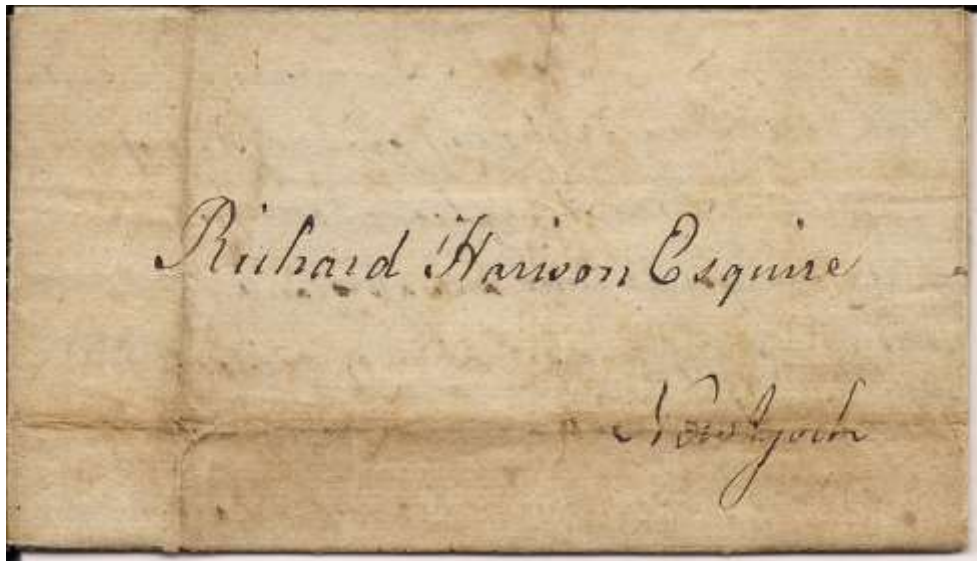 Richard Harison Esquire
New York